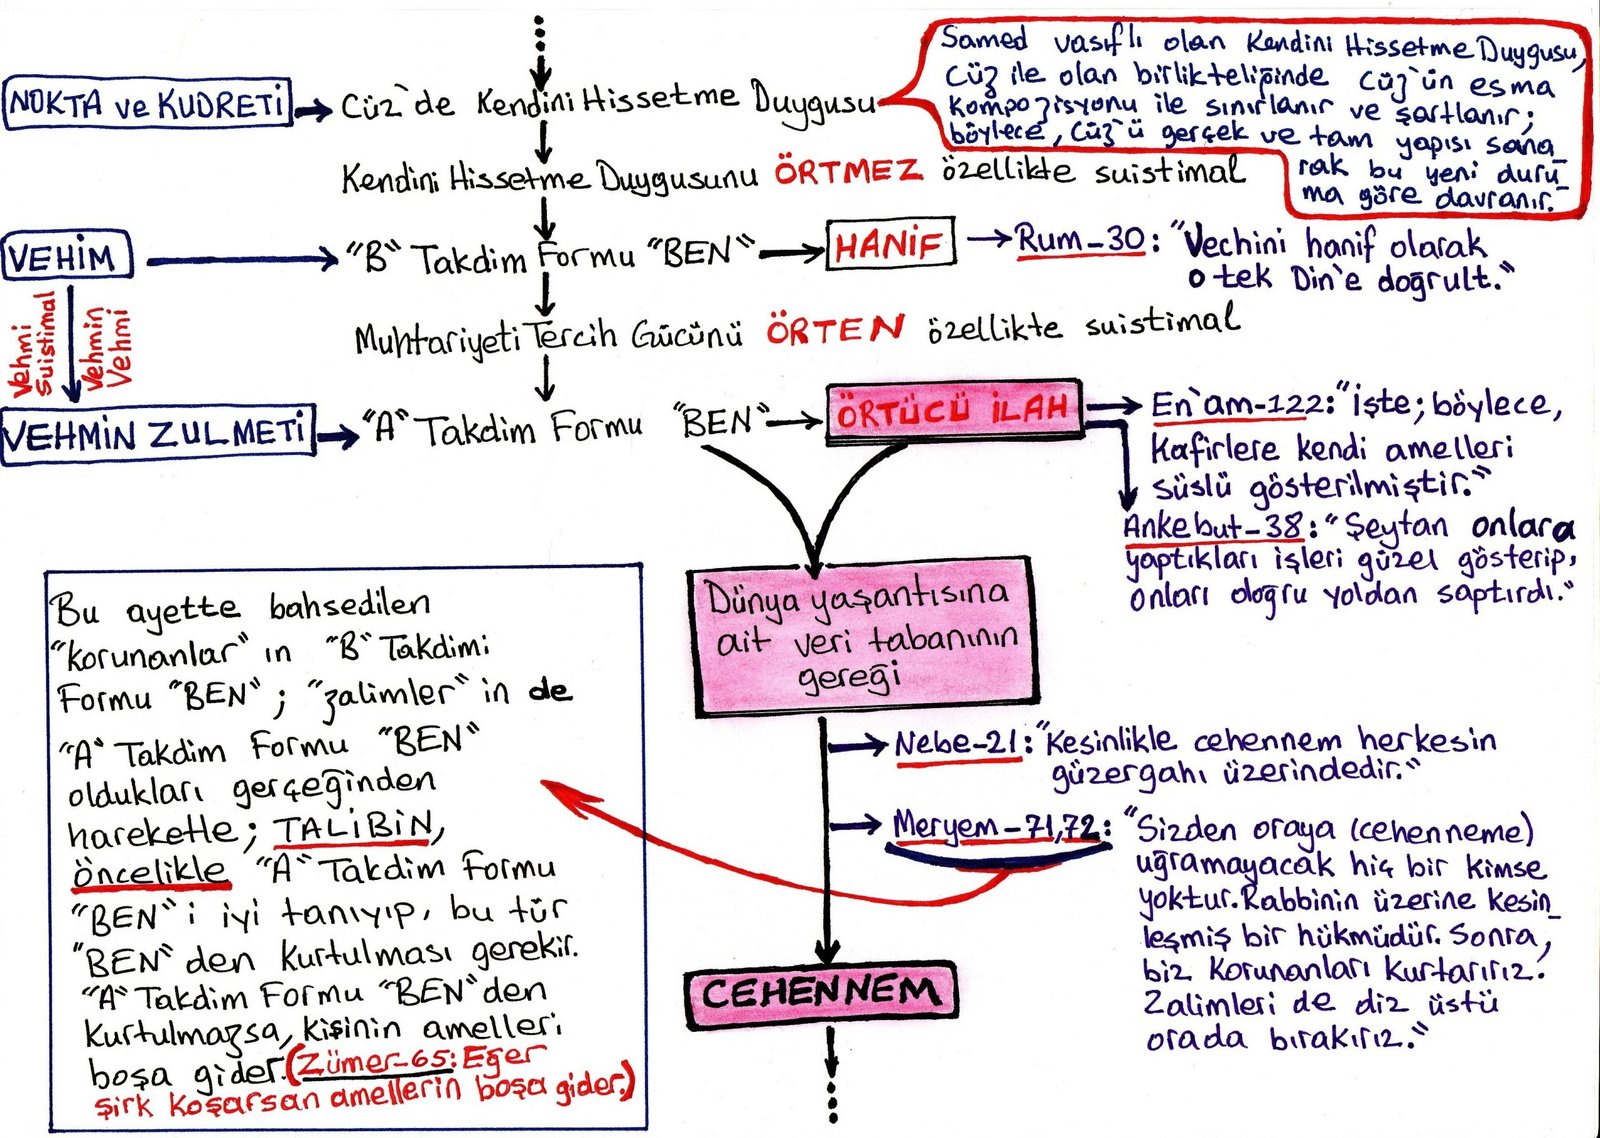 Samed vasıflı olan Kendini Hissetme Duygusu,
Cüz ile olan birlikteliğinde Cüz'ün esma
kompozisyonu ile sınırlanır ve şartlanır;
böylece, Cüz'ü gerçek ve tam yapısı sana_
rak bu yeni duru_
ma göre davranır.
NOKTA ve KUDRETİ
Cüz'de Kendini Hissetme Duygusu
Kendini Hissetme Duygusunu ÖRTMEZ özellikte suistimal
VEHİM
"B" Takdim Formu "BEN"
HANİF
Rum-30: "Vechini hanif olarak
o tek Din'e doğrult."
Vehmi
Suistimal
Vehmin
Vehmi
Muhtariyeti Tercih Gücünü ÖRTEN özellikte suistimal
VEHMİN ZULMETİ
"A" Takdim Formu "BEN"
ÖRTÜCÜ İLAH
En'am-122: "İşte; böylece,
Kafirlere kendi amelleri
süslü gösterilmiştir."
Ankebut-38: "Şeytan onlara
yaptıkları işleri güzel gösterip,
onları doğru yoldan saptırdı."
Dünya yaşantısına
ait veri tabanının
gereği
Bu ayette bahsedilen
"korunanlar"ın "B" Takdimi
Formu "BEN"; "zalimler"in de
"A" Takdim Formu "BEN"
oldukları gerçeğinden
hareketle; TALİBİN,
öncelikle "A" Takdim Formu
"BEN"i iyi tanıyıp, bu tür
"BEN"den kurtulması gerekir.
"A" Takdim Formu "BEN"den
kurtulmazsa, kişinin amelleri
boşa gider. (Zümer-65: Eğer
şirk koşarsan amellerin boşa gider.)
Nebe-21: "Kesinlikle cehennem herkesin
güzergahı üzerindedir."
Meryem-71,72: "Sizden oraya (cehenneme)
uğramayacak hiç bir kimse
yoktur. Rabbinin üzerine kesin_
leşmiş bir hükmüdür. Sonra,
biz korunanları kurtarırız.
Zalimleri de diz üstü
orada bırakırız."
CEHENNEM